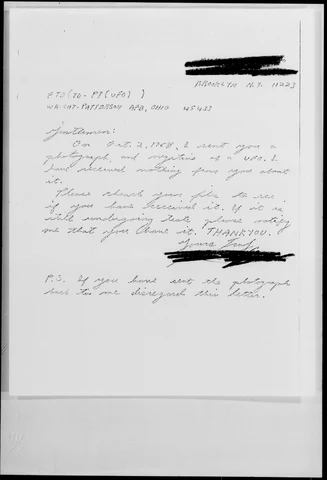 BROOKLYN N.Y. 11223
FTD (TD-PT (UFO) )
WRIGHT-PATTERSON AFB, OHIO 45433
Gentlemen:
On Oct. 2, 1968, I sent you a
photograph, and negative of a UFO. I
have received nothing from you about
it.
Please check your files to see
if you have received it. If it is
still undergoing tests, please notify
me that you have it. THANKYOU.
Yours Truly
P.S. If you have sent the photograph
back to me disregard this letter.